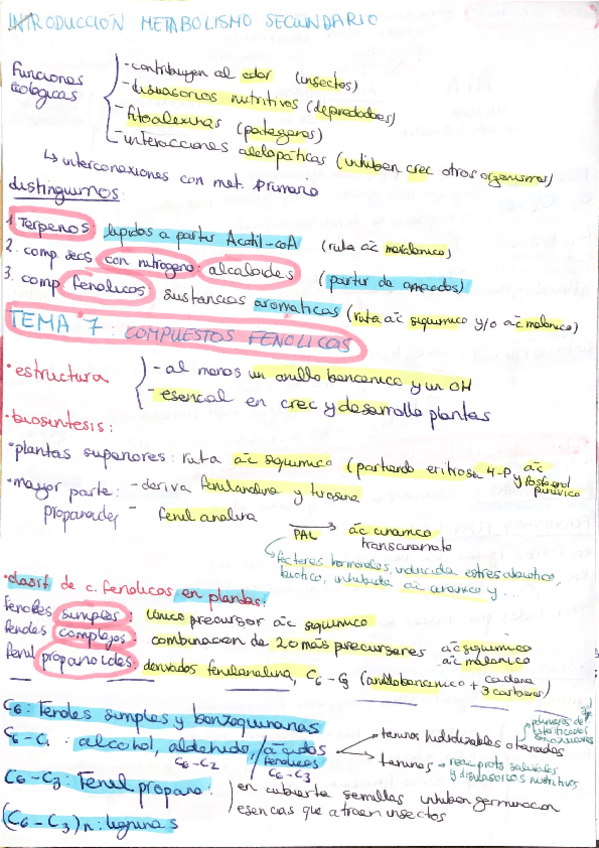 INTRODUCCIÓN METABOLISMO SECUNDARIO
Funciones ecologicas
- contribuyen al olor (insectos)
- disuasorios nutritivos (depredadores)
- fitoalexinas (patogenos)
- interacciones alelopáticas (inhiben crec otros organismos)
↳ interconexiones con met. primario
distinguimos:
1. Terpenos: lipidos a partir Acetil-coA (ruta ác mevalonico)
2. comp. secs con nitrogeno: alcaloides (partir de aminoacidos)
3. comp. fenolicos sustancias aromaticas (ruta ác siquimico y/o ác malonico)
TEMA 7: COMPUESTOS FENOLICOS
• estructura
- al menos un anillo bencenico y un OH
- esencial en crec y desarrollo plantas
• biosintesis:
• plantas superiores: ruta ác siquimico (partiendo eritrosa 4-P, ác
y fosfoenol piruvico
• mayor parte: - deriva fenilanalina y tirosina
- fenil analina PAL → ác cinamico
transcinamato
↳ factores hormonales, inducida estres abiotico,
biotico, inhibida ác cinamico y ...
• clasif de c. fenolicos en plantas:
fenoles simples: único precursor ác siquimico
fenoles complejos: combinacion de 2 o más precursores ác siquimico
ác malonico
fenil propanoides: derivados fenilanalina, C6-C3 (anillo bencenico + cadena
3 carbonos)
C6: Fenoles simples y benzoquinonas
C6-C1: alcohol, aldehido, / ácidos fenolicos
C6-C2 C6-C3
→ taninos hidrolizables o
→ taninos → reac prots salivales
y disuasorios nutritivos
C6-C3: Fenil propano:
en cubierta semillas inhiben germinacion
esencias que atraen insectos
(C6-C3)n: ligninas